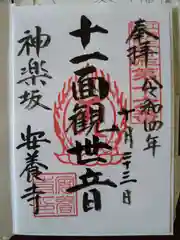 奉拝
令和四年
十月二十三日
十一面観世音
神楽坂
安養寺